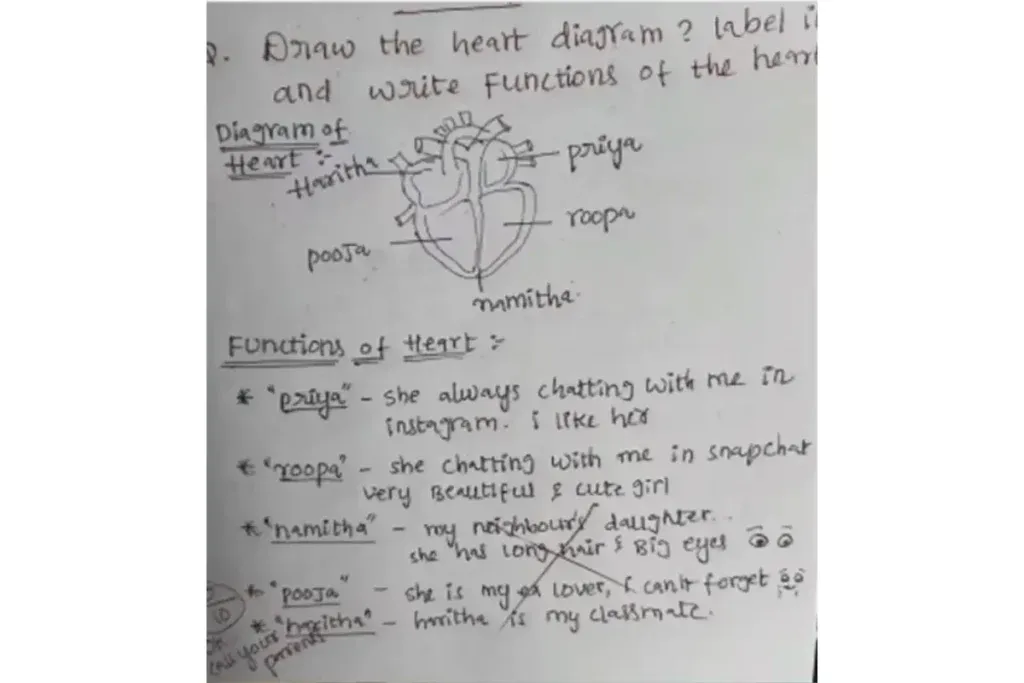 Q. Draw the heart diagram? label i
and write Functions of the heart
Diagram of
Heart :-
Haritha
priya
roopa
pooja
namitha.
Functions of Heart :-
* "priya" - she always chatting with me in
instagram. i like her
* "roopa" - she chatting with me in snapchat
very Beautiful & cute girl
* "namitha" - my neighbour's daughter..
she has long hair & Big eyes
* "pooja" - she is my ex lover, i can't forget
* "haritha" - haritha is my classmate.
10
call your
parents